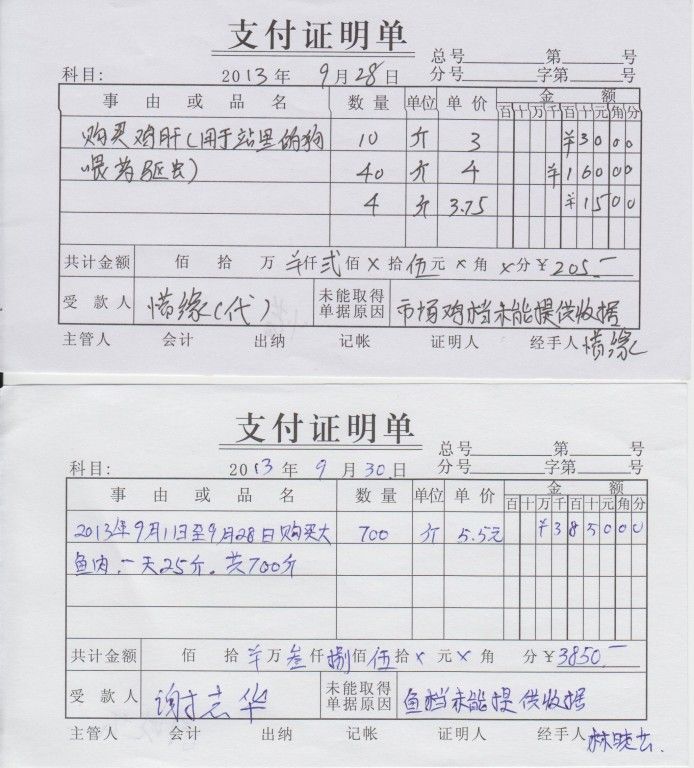 支付证明单
总号 第 号
科目: 2013年 9月28日 分号 字第 号
事由或品名 数量 单位 单价 金额
百十万千百十元角分
购买鸡肝(用于站里的狗 10 斤 3 ¥3000
喂药驱虫) 40 斤 4 ¥16000
4 斤 3.75 ¥1500
共计金额 佰 拾 万 ¥仟贰佰×拾伍元×角×分¥205.—
受款人 惜缘(代) 未能取得单据原因 市场鸡档未能提供收据
主管人 会计 出纳 记帐 证明人 经手人 惜缘
支付证明单
总号 第 号
科目: 2013年 9月30日 分号 字第 号
事由或品名 数量 单位 单价 金额
百十万千百十元角分
2013年9月1日至9月28日购买大 700 斤 5.5元 ¥385000
鱼肉,一天25斤。共700斤
共计金额 佰 拾¥万叁仟捌佰伍拾×元×角 分¥3850.—
受款人 谢志华 未能取得单据原因 鱼档未能提供收据
主管人 会计 出纳 记帐 证明人 经手人 林晓云.